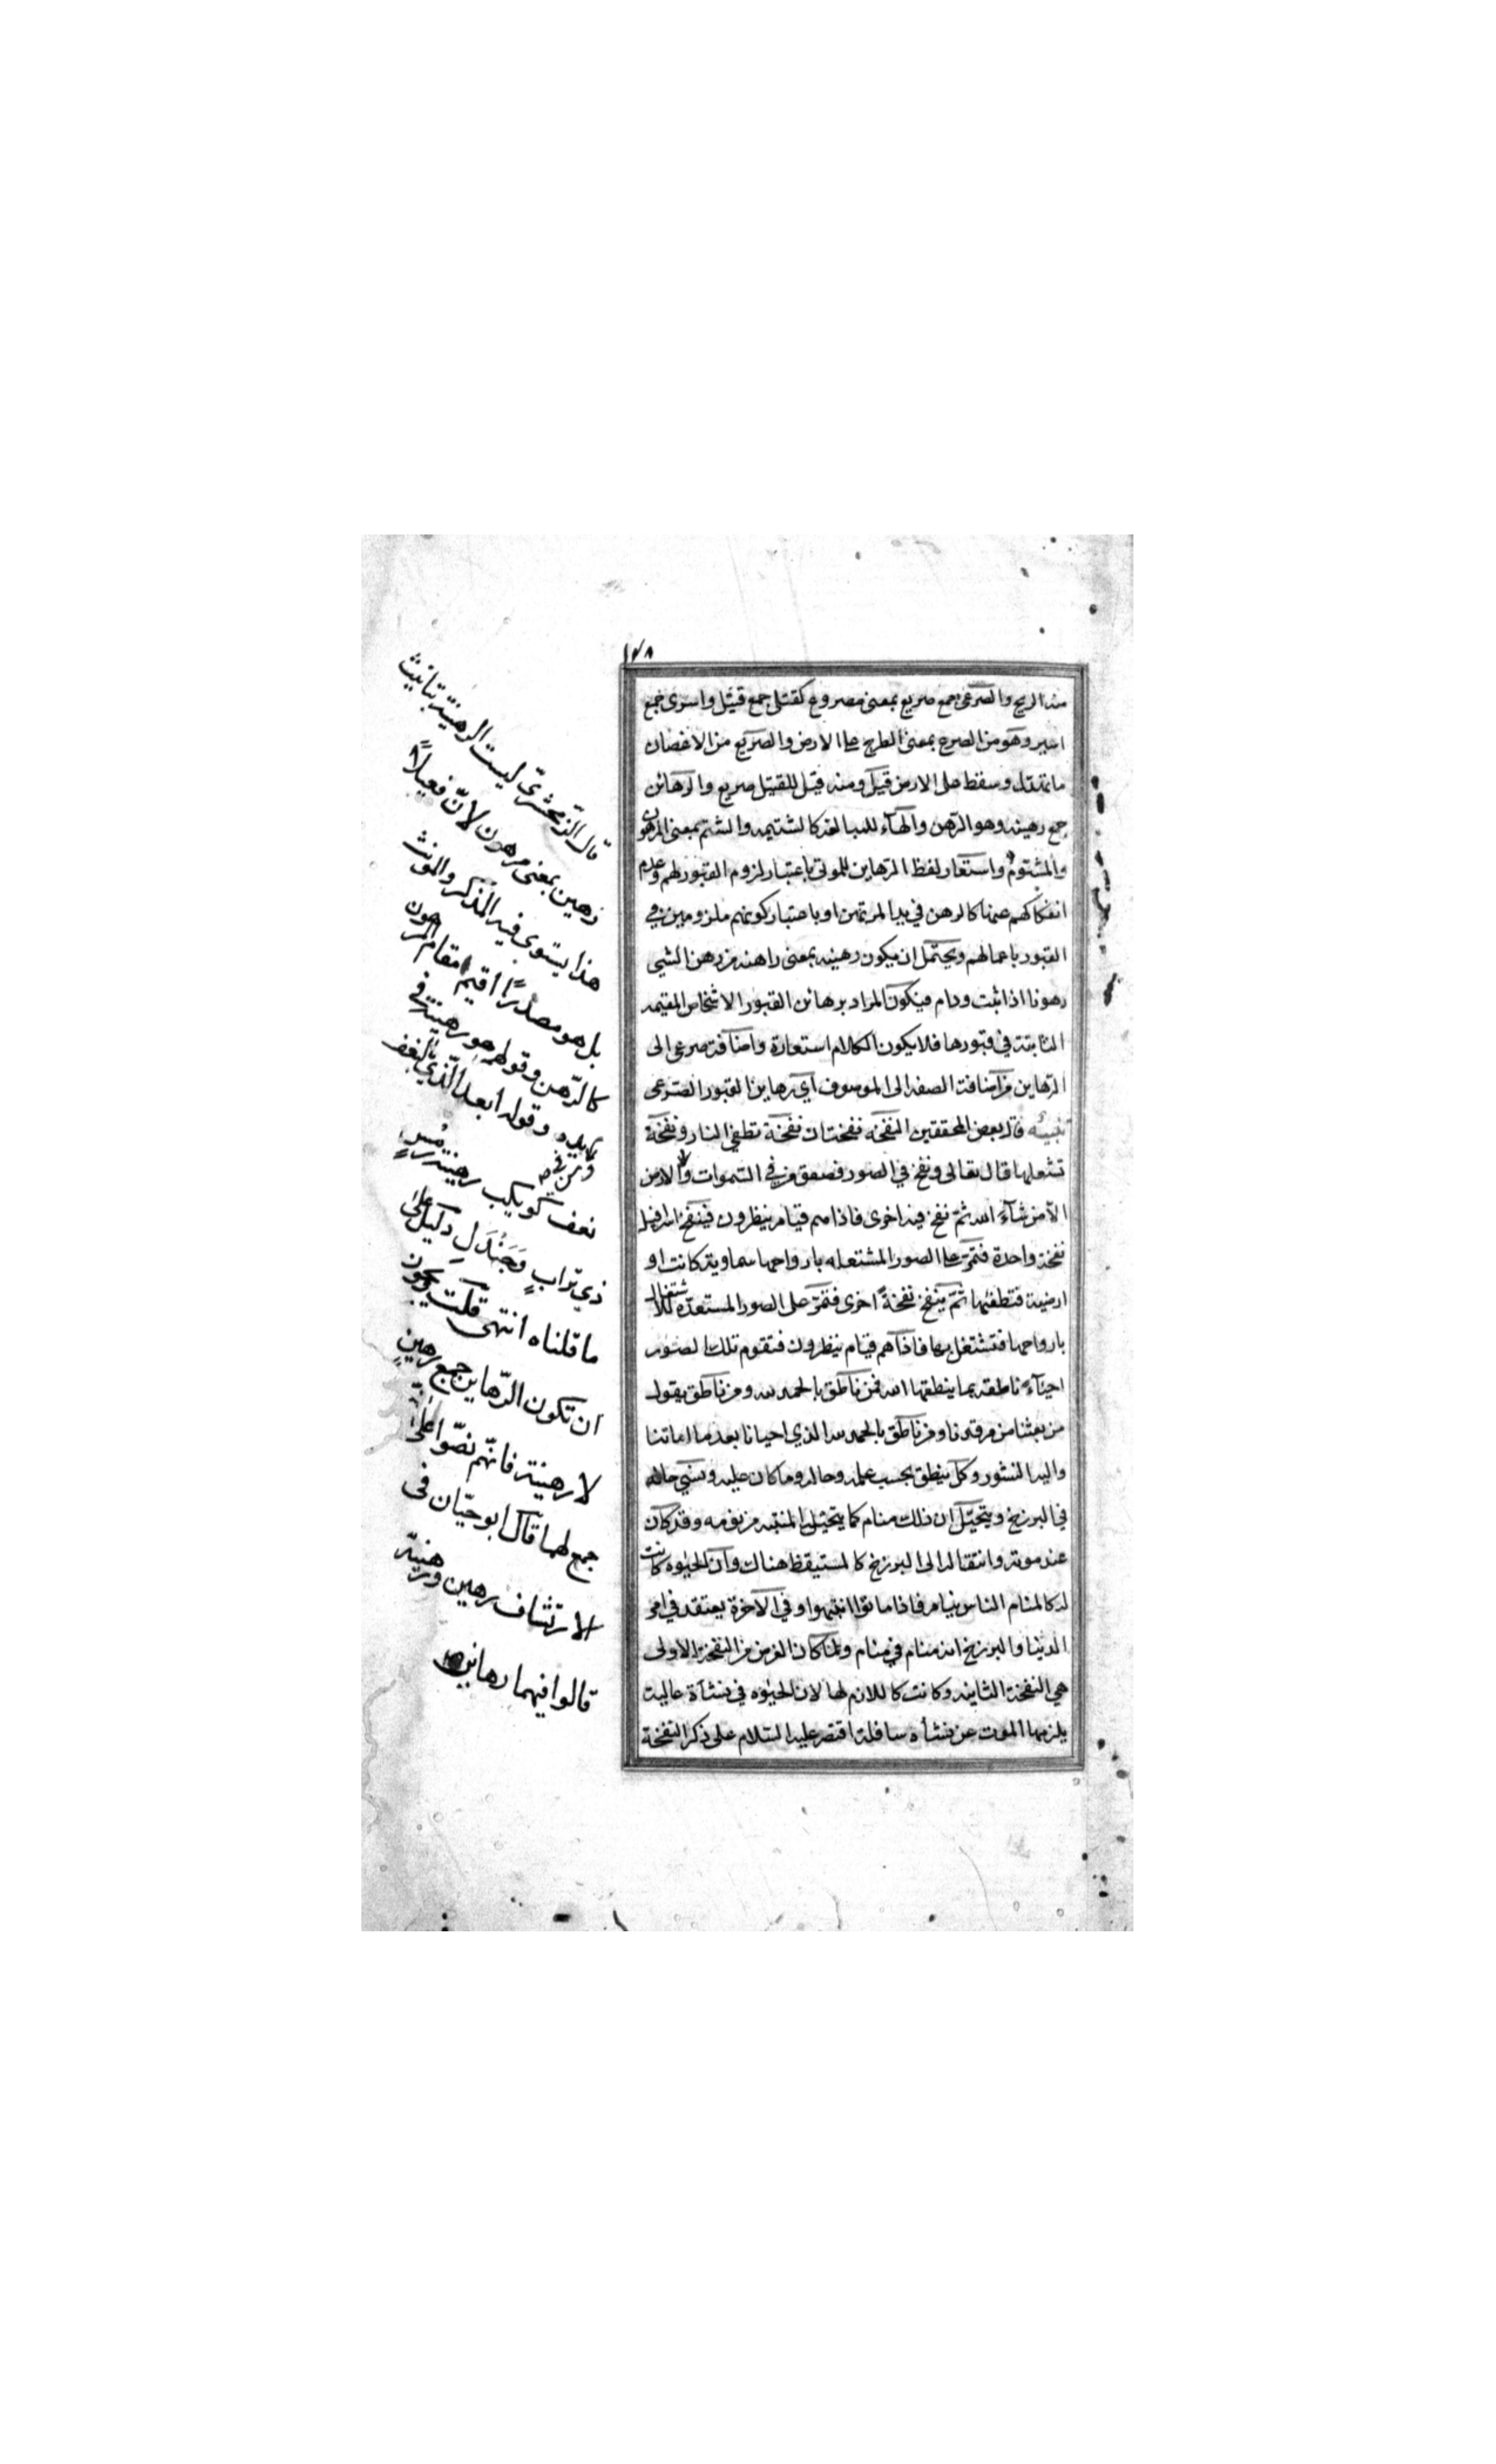 ١٧٨
منه الريح والصرعى جمع صريع بمعنى مصروع كقتلى جمع قتيل واسرى جمع
اسير وهو من الصرع بمعنى الطرح على الارض والصريع من الاغصان
ما تهدل وسقط على الارض قيل ومنه قيل للقتيل صريع والرهائن
جمع رهينه وهو الرهن والهآء للمبالغه كالشتيمه والشتم بمعنى المرهون
والمشتوم واستعار لفظ الرهاين للموتى باعتبار لزوم القبور لهم وعدم
انفكاكهم عنها كالرهن في يد المرتهن او باعتبار كونهم ملزومين في
القبور باعمالهم ويحتمل ان يكون رهينه بمعنى راهنه من رهن الشي
رهونا اذا ثبت ودام فيكون المراد برهائن القبور الاشخاص المقيمه
الثابتة في قبورها فلا يكون الكلام استعارة واضافة صرعى الى
الرهاين من اضافة الصفه الى الموصوف اي رهاين القبور الصرعى
تنبيه قال بعض المحققين النفخه نفختان نفخة تطفئ النار ونفخة
تشعلها قال تعالى ونفخ في الصور فصعق من في السموات والارض
الا من شآء الله ثم نفخ فيه اخرى فاذا هم قيام ينظرون فينفخ اسرافيل
نفخة واحدة فتمر على الصور المشتعله بارواحها سماوية كانت او
ارضية فتطفئها ثم ينفخ نفخةً اخرى فتمر على الصور المستعدّه للاشتعال
بارواحها فتشتعل بها فاذا هم قيام ينظرون فتقوم تلك الصور
احيآء ناطقه بما ينطقها الله فمن ناطق بالحمد لله ومن ناطق يقول
من بعثنا من مرقدنا ومن ناطق بالحمد لله الذي احيانا بعد ما اماتنا
واليه النشور وكل ينطق بحسب علمه وحاله وما كان عليه ونسي حاله
في البرزخ ويتخيل ان ذلك منام كما يتخيل المنتبه من نومه وقد كان
عند موته وانتقاله الى البرزخ كالمستيقظ هناك وان الحيوه كانت
له كالمنام الناس نيام فاذا ماتوا انتبهوا وفي الآخرة يعتقد في امر
الدنيا والبرزخ انه منام في منام ولما كان الغرض من النفخة الاولى
هي النفخة الثانيه وكانت كاللازم لها لان الحيوه في نشأة عالية
يلزمها الموت عن نشأه سافلة اقتصر عليه السلام على ذكر النفخة
قال الزمخشريّ ليست الرهينة بتانيث
رهين بمعنى مرهون لانّ فعيلاً
هذا يستوي فيه المذكر والمونث
بل هو مصدرًا اقيم مقام المرهون
كالرّهن وقولهم هو رهينة في
يديه وقوله أبعد الّذي بالنعف
نعف كويكب رهينة رمسٍ
ذي ترابٍ وجَندَلِ دليل على
ما قلناه انتهى قلت ويجوز
ان تكون الرّهاين جمع رهينٍ
لا رهينة فانّهم نصّوا على انّه
جمع لهما قال ابو حيّان في
الارتشاف رهين ورهينة
قالوا فيهما رهاين